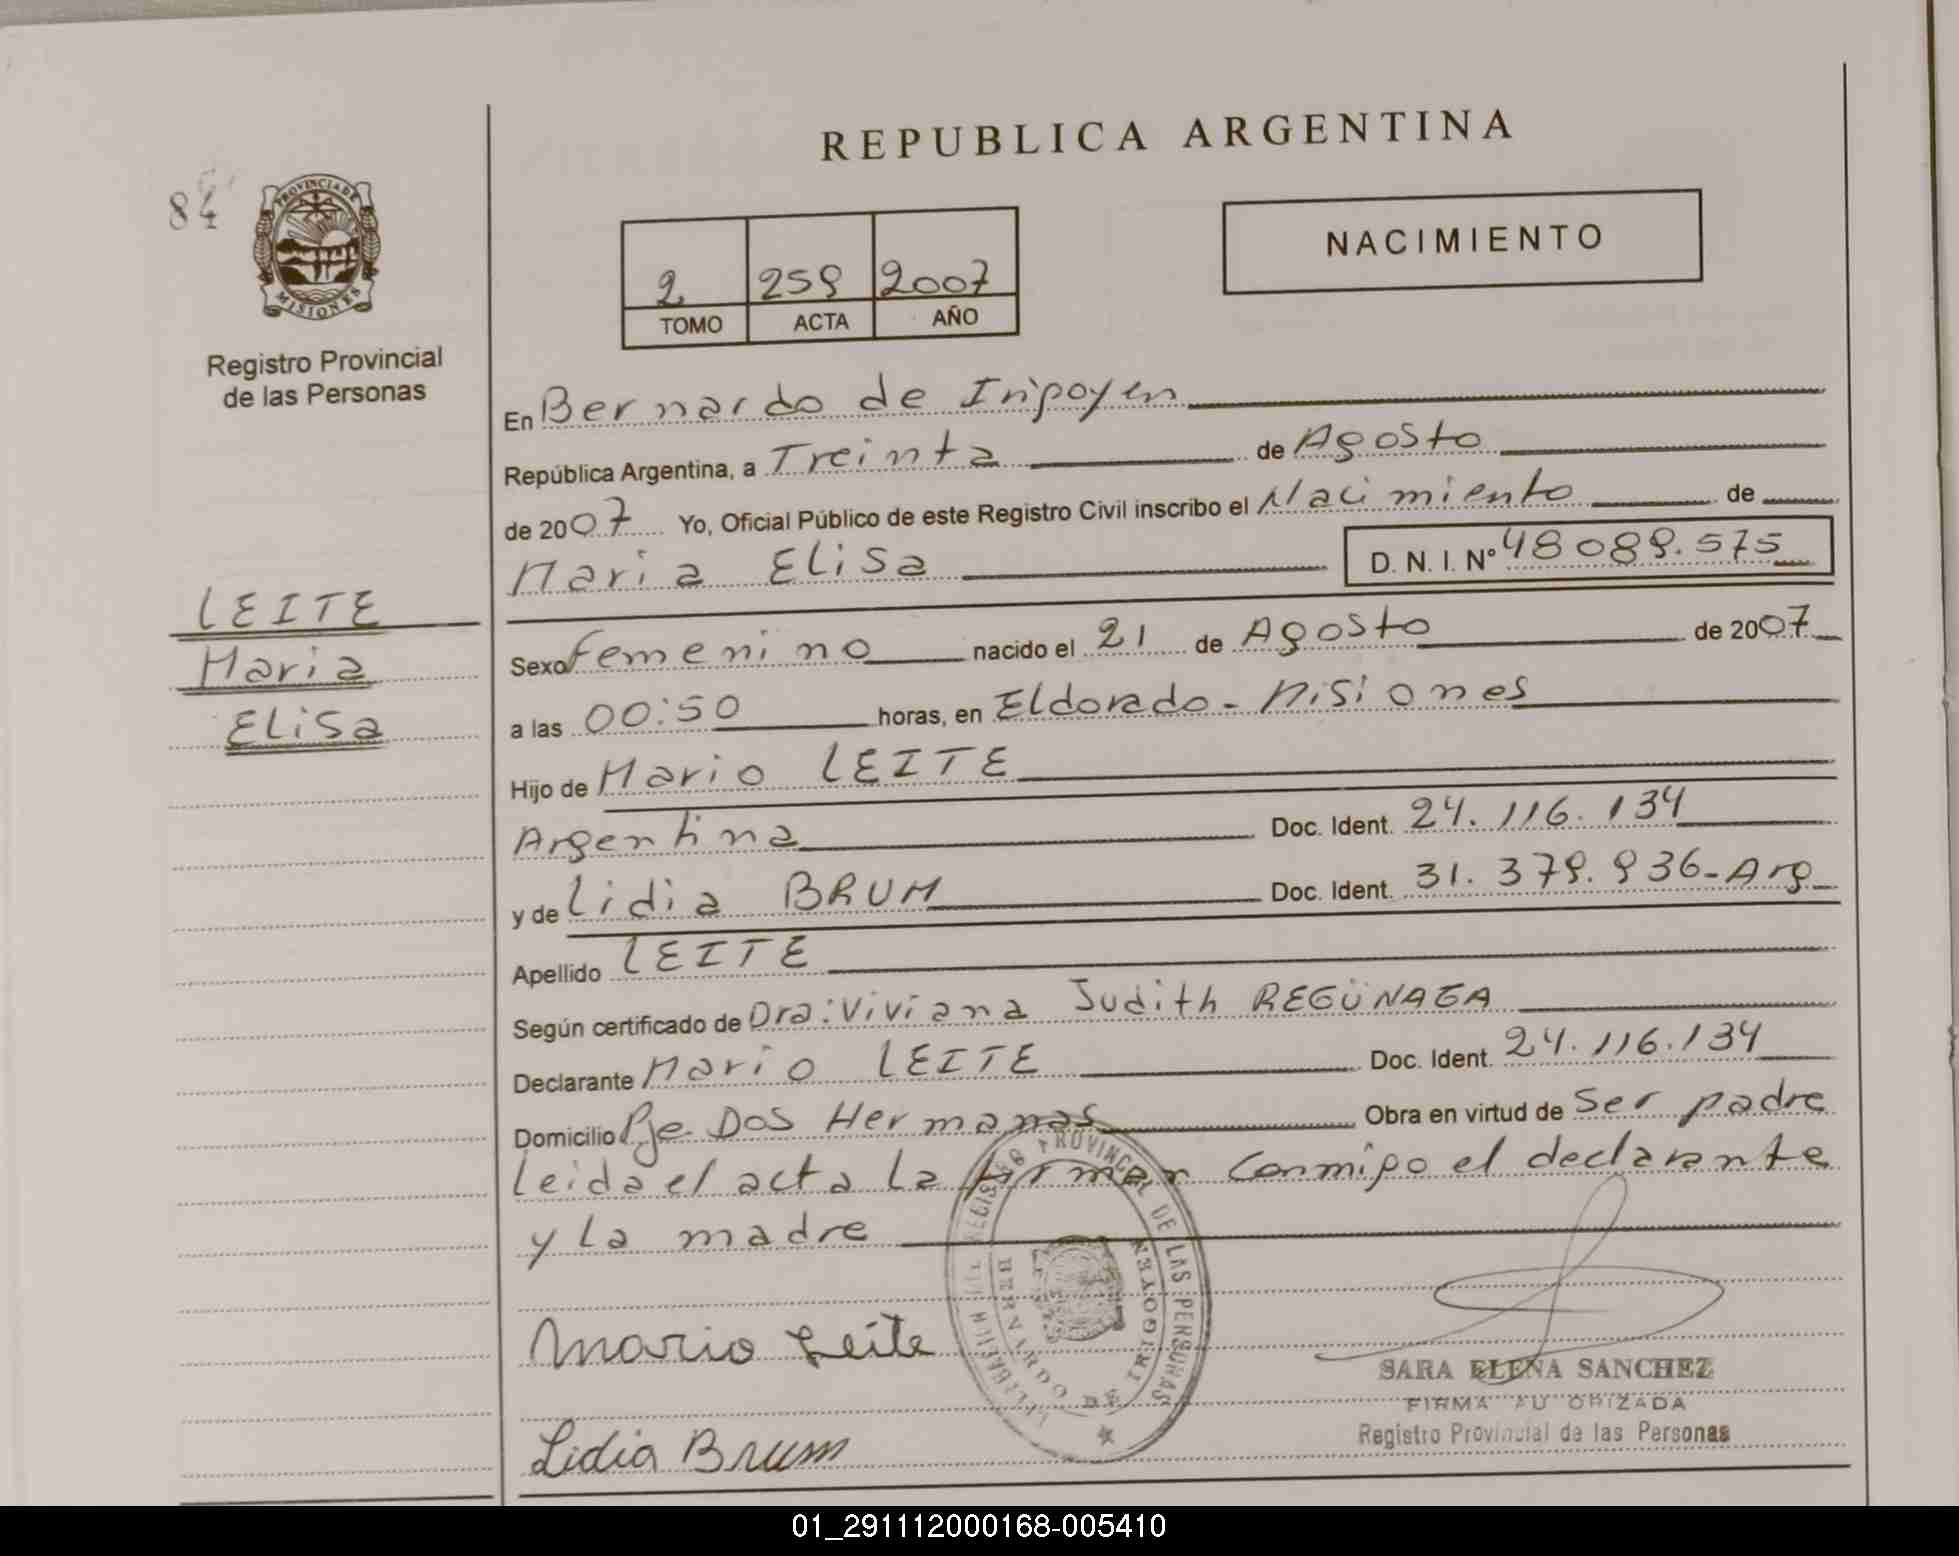 REPUBLICA ARGENTINA
84
PROVINCIA DE
MISIONES
Registro Provincial
de las Personas
NACIMIENTO
2 259 2007
TOMO ACTA AÑO
En Bernardo de Irigoyen
República Argentina, a Treinta de Agosto
de 2007 Yo, Oficial Público de este Registro Civil inscribo el Nacimiento de
Maria Elisa D. N. I. Nº 48 089.575
LEITE
Maria
Elisa
Sexo Femenino nacido el 21 de Agosto de 2007
a las 00:50 horas, en Eldorado - Misiones
Hijo de Mario LEITE
Argentina Doc. Ident. 24.116.134
y de Lidia BRUM Doc. Ident. 31.379.936-Arg
Apellido LEITE
Según certificado de Dra: Viviana Judith REGÜNAGA
Declarante Mario LEITE Doc. Ident. 24.116.134
Domicilio Pje Dos Hermanas Obra en virtud de Ser padre
Leida el acta La firman Conmigo el declarante
y La madre
REGISTRO PROVINCIAL DE LAS PERSONAS
BERNARDO DE IRIGOYEN
Mario Leite
Lidia Brum
SARA ELENA SANCHEZ
FIRMA AUTORIZADA
Registro Provincial de las Personas
01_291112000168-005410